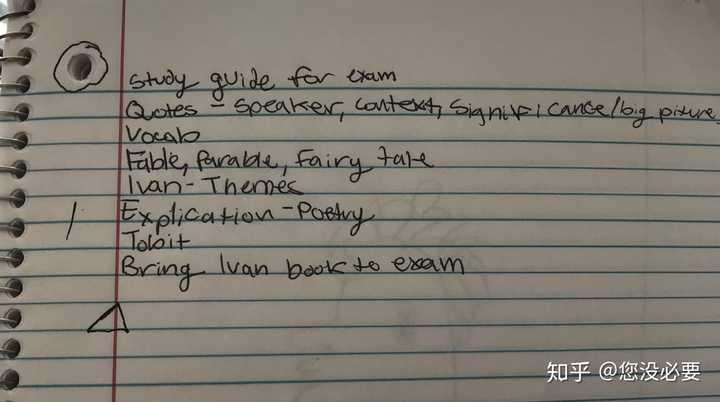 Study guide for exam
Quotes - Speaker, Context, Significance/big picture
Vocab
Fable, Parable, Fairy tale
Ivan - Themes
Explication - Poetry
Tobit
Bring Ivan book to exam
知乎 @您没必要